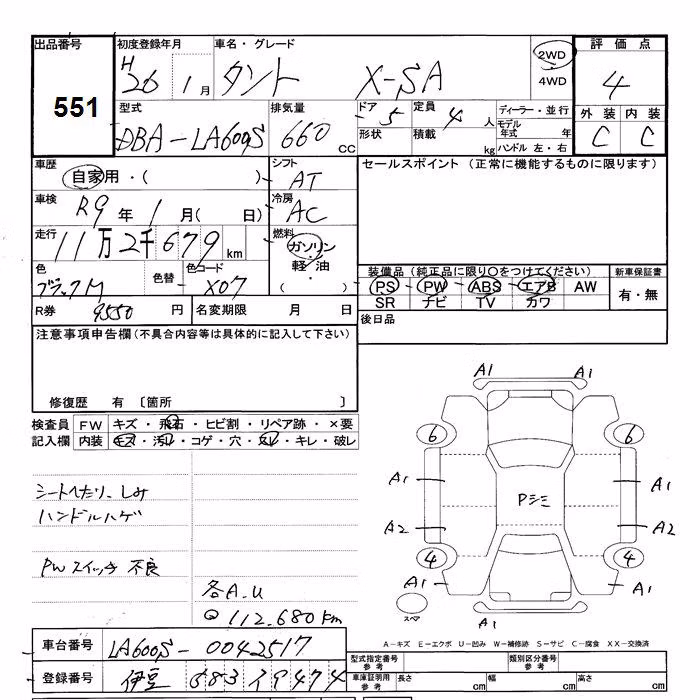 出品番号 551
初度登録年月 H26年 1月
車名・グレード タント X-SA
2WD
4WD
評価点 4
外装 C 内装 C
型式 DBA-LA600S
排気量 660 CC
ドア 5
形状
定員 4人
積載 kg
ディーラー・並行
モデル年式 年
ハンドル 左・右
車歴 自家用・( )
シフト AT
セールスポイント(正常に機能するものに限ります)
車検 R9年 1月( 日)
冷房 AC
走行 11万2千679km
燃料 ガソリン
軽油
・
( )
色 ブラックM
色替
色コード X07
装備品(純正品に限り○をつけてください)
PS PW ABS エアB AW
SR ナビ TV カワ
新車保証書
有・無
R券 9550円
名変期限 月 日
後日品
注意事項申告欄(不具合内容等は具体的に記入して下さい)
修復歴 有 〔箇所 〕
検査員記入欄
FW キズ・飛石・ヒビ割・リペア跡・×要
内装 キズ・汚レ・コゲ・穴・スレ・キレ・破レ
シートへたり、しみ
ハンドルハゲ
PWスイッチ 不良
各A.U
112,680km
A1 A1
6 6
A1 A1
Pシミ
A2 A2
4 4
A1 A1
スペア
A1
A-キズ E-エクボ U-凹み W-補修跡 S-サビ C-腐食 XX-交換済
車台番号 LA600S-0042517
登録番号 伊豆 583 19474
型式指定番号 参考
類別区分番号 参考
車庫証明用 参考
長さ cm 幅 cm 高さ cm